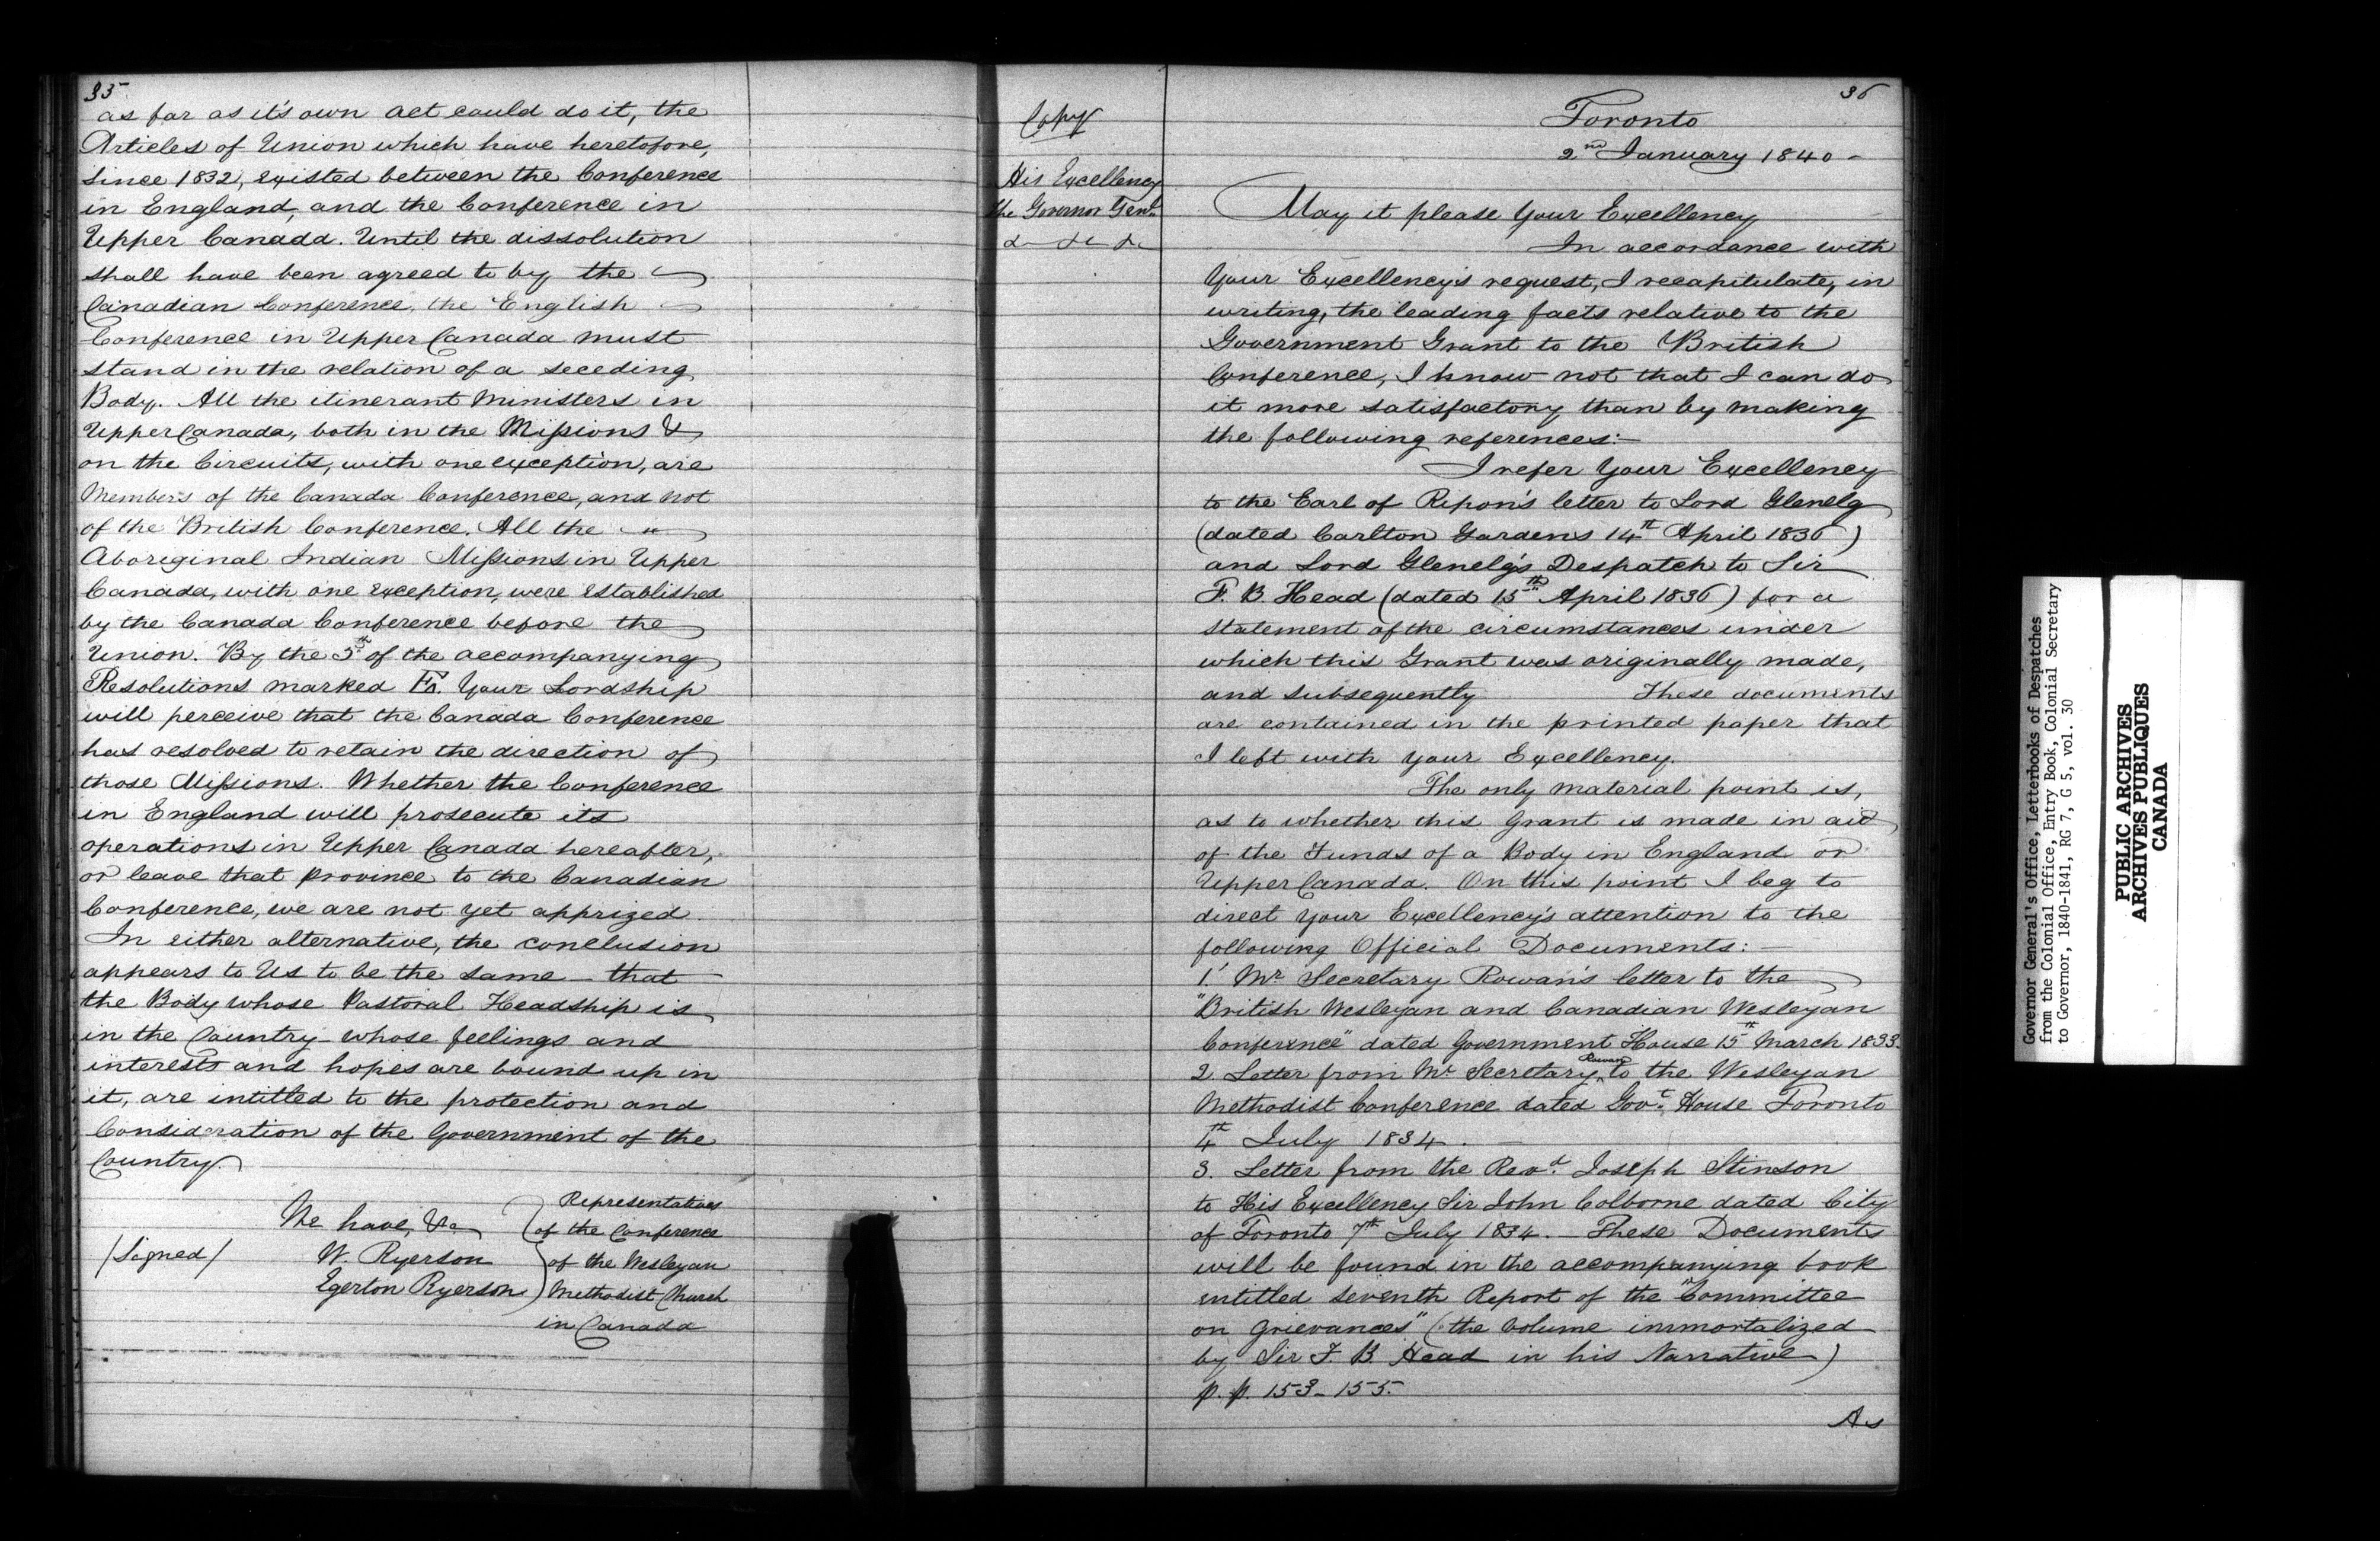 35
as far as it's own act could do it, the
Articles of Union which have heretofore,
since 1832, existed between the Conference
in England, and the Conference in
Upper Canada. Until the dissolution
shall have been agreed to by the
Canadian Conference, the English
Conference in Upper Canada must
stand in the relation of a seceding
Body. All the itinerant Ministers in
Upper Canada, both in the Missions &
on the Circuits, with one exception, are
Members of the Canada Conference, and not
of the British Conference. All the
Aboriginal Indian Missions in Upper
Canada, with one exception, were established
by the Canada Conference before the
Union. By the 5th of the accompanying
Resolutions marked Your Lordship
will perceive that the Canada Conference
has resolved to retain the direction of
those Missions. Whether the Conference
in England will prosecute its
operations in Upper Canada hereafter,
or leave that province to the Canadian
Conference, we are not yet apprized.
In either alternative, the conclusion
appears to Us to be the same – that
the Body whose Pastoral Headship is
in the Country – whose feelings and
interests and hopes are bound up in
it, are intitled to the protection and
Consideration of the Government of the
Country.
We have, &c.
/Signed/ W. Ryerson
Egerton Ryerson
Representatives
of the Conference
of the Wesleyan
Methodist Church
in Canada
36
Copy
His Excellency
the Governor Genl.
&c &c &c
Toronto
2nd January 1840 –
May it please Your Excellency
In accordance with
Your Excellency's request, I recapitulate, in
writing, the leading facts relative to the
Government Grant to the British
Conference, I know not that I can do
it more satisfactory than by making
the following references:–
I refer Your Excellency
to the Earl of Ripon's letter to Lord Glenelg
(dated Carlton Gardens 14th April 1836)
and Lord Glenelg's Despatch to Sir
F. B. Head (dated 15th April 1836) for a
statement of the circumstances under
which this Grant was originally made,
and subsequently These documents
are contained in the printed paper that
I left with your Excellency.
The only material point is,
as to whether this Grant is made in aid
of the Funds of a Body in England or
Upper Canada. On this point I beg to
direct Your Excellency's attention to the
following Official Documents: –
1. Mr. Secretary Rowan's letter to the
"British Wesleyan and Canadian Wesleyan
Conference" dated Government House 15th March 1833.
2. Letter from Mr. Secretary Rowan to the Wesleyan
Methodist Conference dated Govt. House Toronto
4th July 1834. –
3. Letter from the Revd. Joseph Stinson
to His Excellency Sir John Colborne dated City
of Toronto 7th July 1834. – These Documents
will be found in the accompanying book
intitled seventh Report of the "Committee
on Grievances" (the volume immortalized
by Sir F. B. Head in his Narrative)
p. p. 153–155.
As
Governor General's Office, Letterbooks of Despatches
from the Colonial Office, Entry Book, Colonial Secretary
to Governor, 1840-1841, RG 7, G 5, vol. 30
PUBLIC ARCHIVES
ARCHIVES PUBLIQUES
CANADA